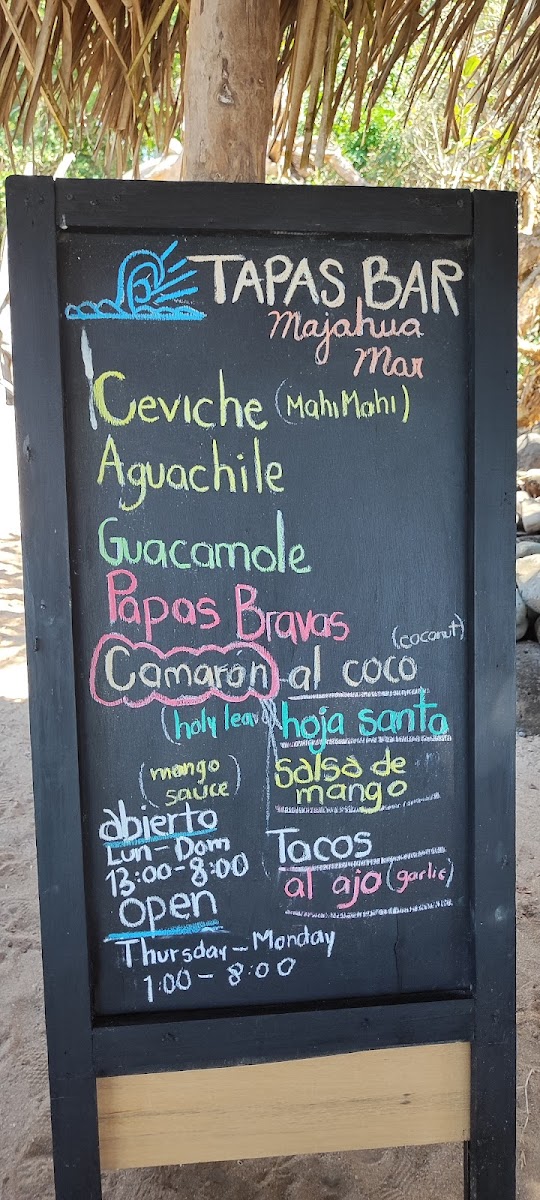 TAPAS BAR
Majahua
Mar
Ceviche (Mahi Mahi)
Aguachile
Guacamole
Papas Bravas
(coconut)
Camarón al coco
(holy leaf) hoja santa
(mango sauce) salsa de mango
abierto
Lun-Dom
13:00-8:00
Tacos
al ajo (garlic)
open
Thursday-Monday
1:00-8:00